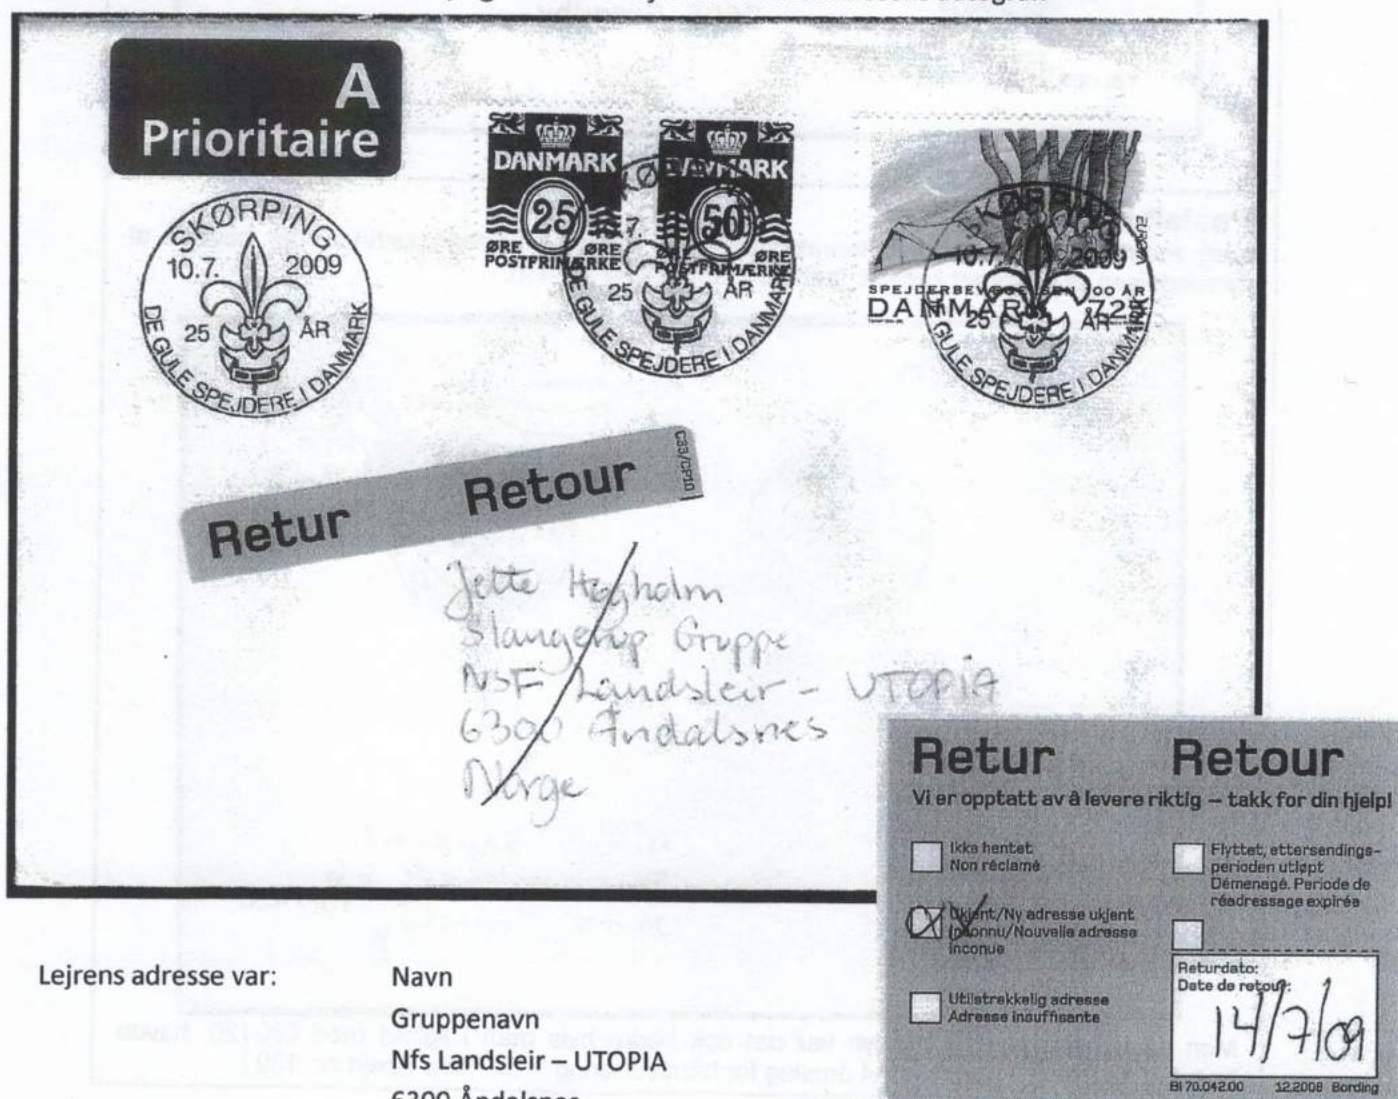 A
Prioritaire
SKØRPING
10.7. 2009
25 ÅR
DE GULE SPEJDERE I DANMARK
DANMARK
25
ØRE ØRE
POSTFRIMÆRKE
DANMARK
50
ØRE ØRE
POSTFRIMÆRKE
SKØRPING
10.7.
25 ÅR
DE GULE SPEJDERE I DANMARK
EUROPA
SPEJDERBEVÆGELSEN 100 ÅR
DANMARK 725
SKØRPING
10.7. 2009
25 ÅR
GULE SPEJDERE I DANMARK
Retur Retour
C33/CP10
Jette Høgholm
Slangerup Gruppe
NSF Landsleir - UTOPIA
6300 Åndalsnes
Norge
Retur Retour
Vi er opptatt av å levere riktig – takk for din hjelp!
Ikke hentet
Non réclamé
Ukjent/Ny adresse ukjent
Inconnu/Nouvelle adresse
inconue
Utilstrekkelig adresse
Adresse insuffisante
Flyttet, ettersendings-
perioden utløpt
Démenagé. Periode de
réadressage expirée
Returdato:
Date de retour:
14/7/09
BI 70.042.00 12.2008 Bording
Lejrens adresse var: Navn
Gruppenavn
Nfs Landsleir – UTOPIA
6300 Åndalsnes